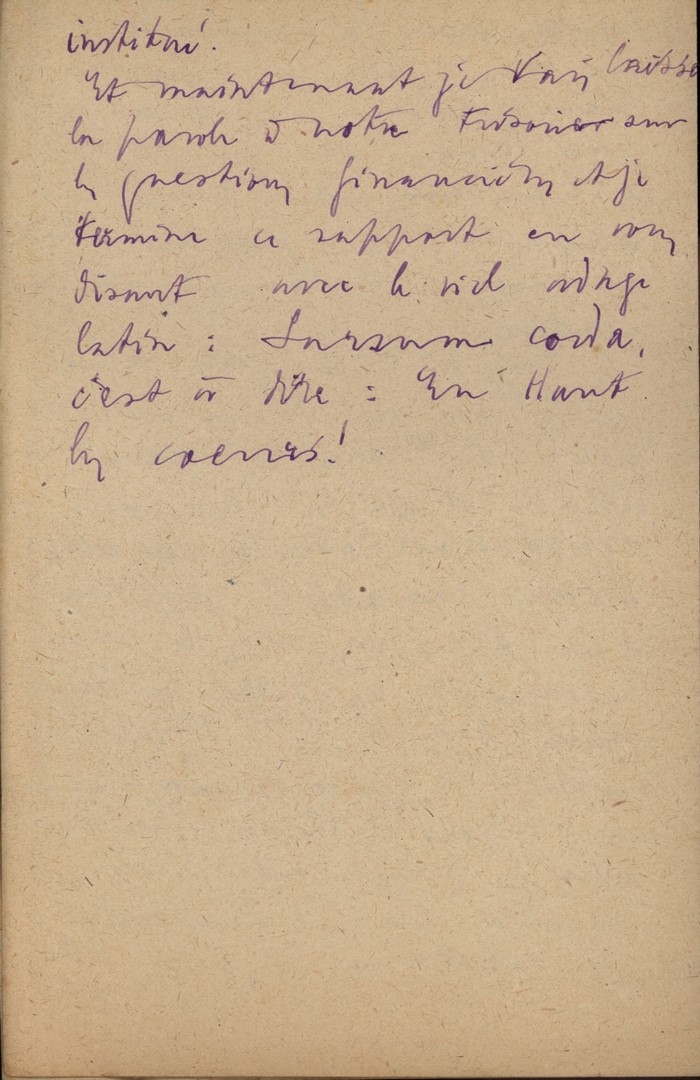 institué.
Et maintenant je vais laisser
la parole à notre trésorier sur
les questions financières et je
termine ce rapport en vous
disant avec le vieil adage
latin : Sursum corda,
c'est à dire : En Haut
les coeurs !